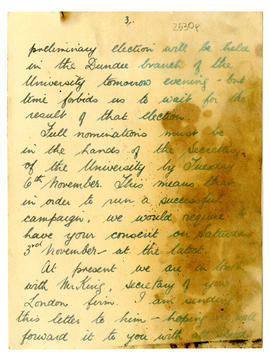 3.
preliminary election will be held
in the Dundee branch of the
University tomorrow evening - but
time forbids us to wait for the
result of that election.
Full nominations must be
in the hands of the Secretary
of the University by Tuesday
6th November. This means that
in order to run a successful
campaign, we would require to
have your consent on Saturday
3rd November - at the latest.
At present we are in touch
with Mr King, secretary of your
London firm. I am sending
this letter to him - hoping
forward it to you with